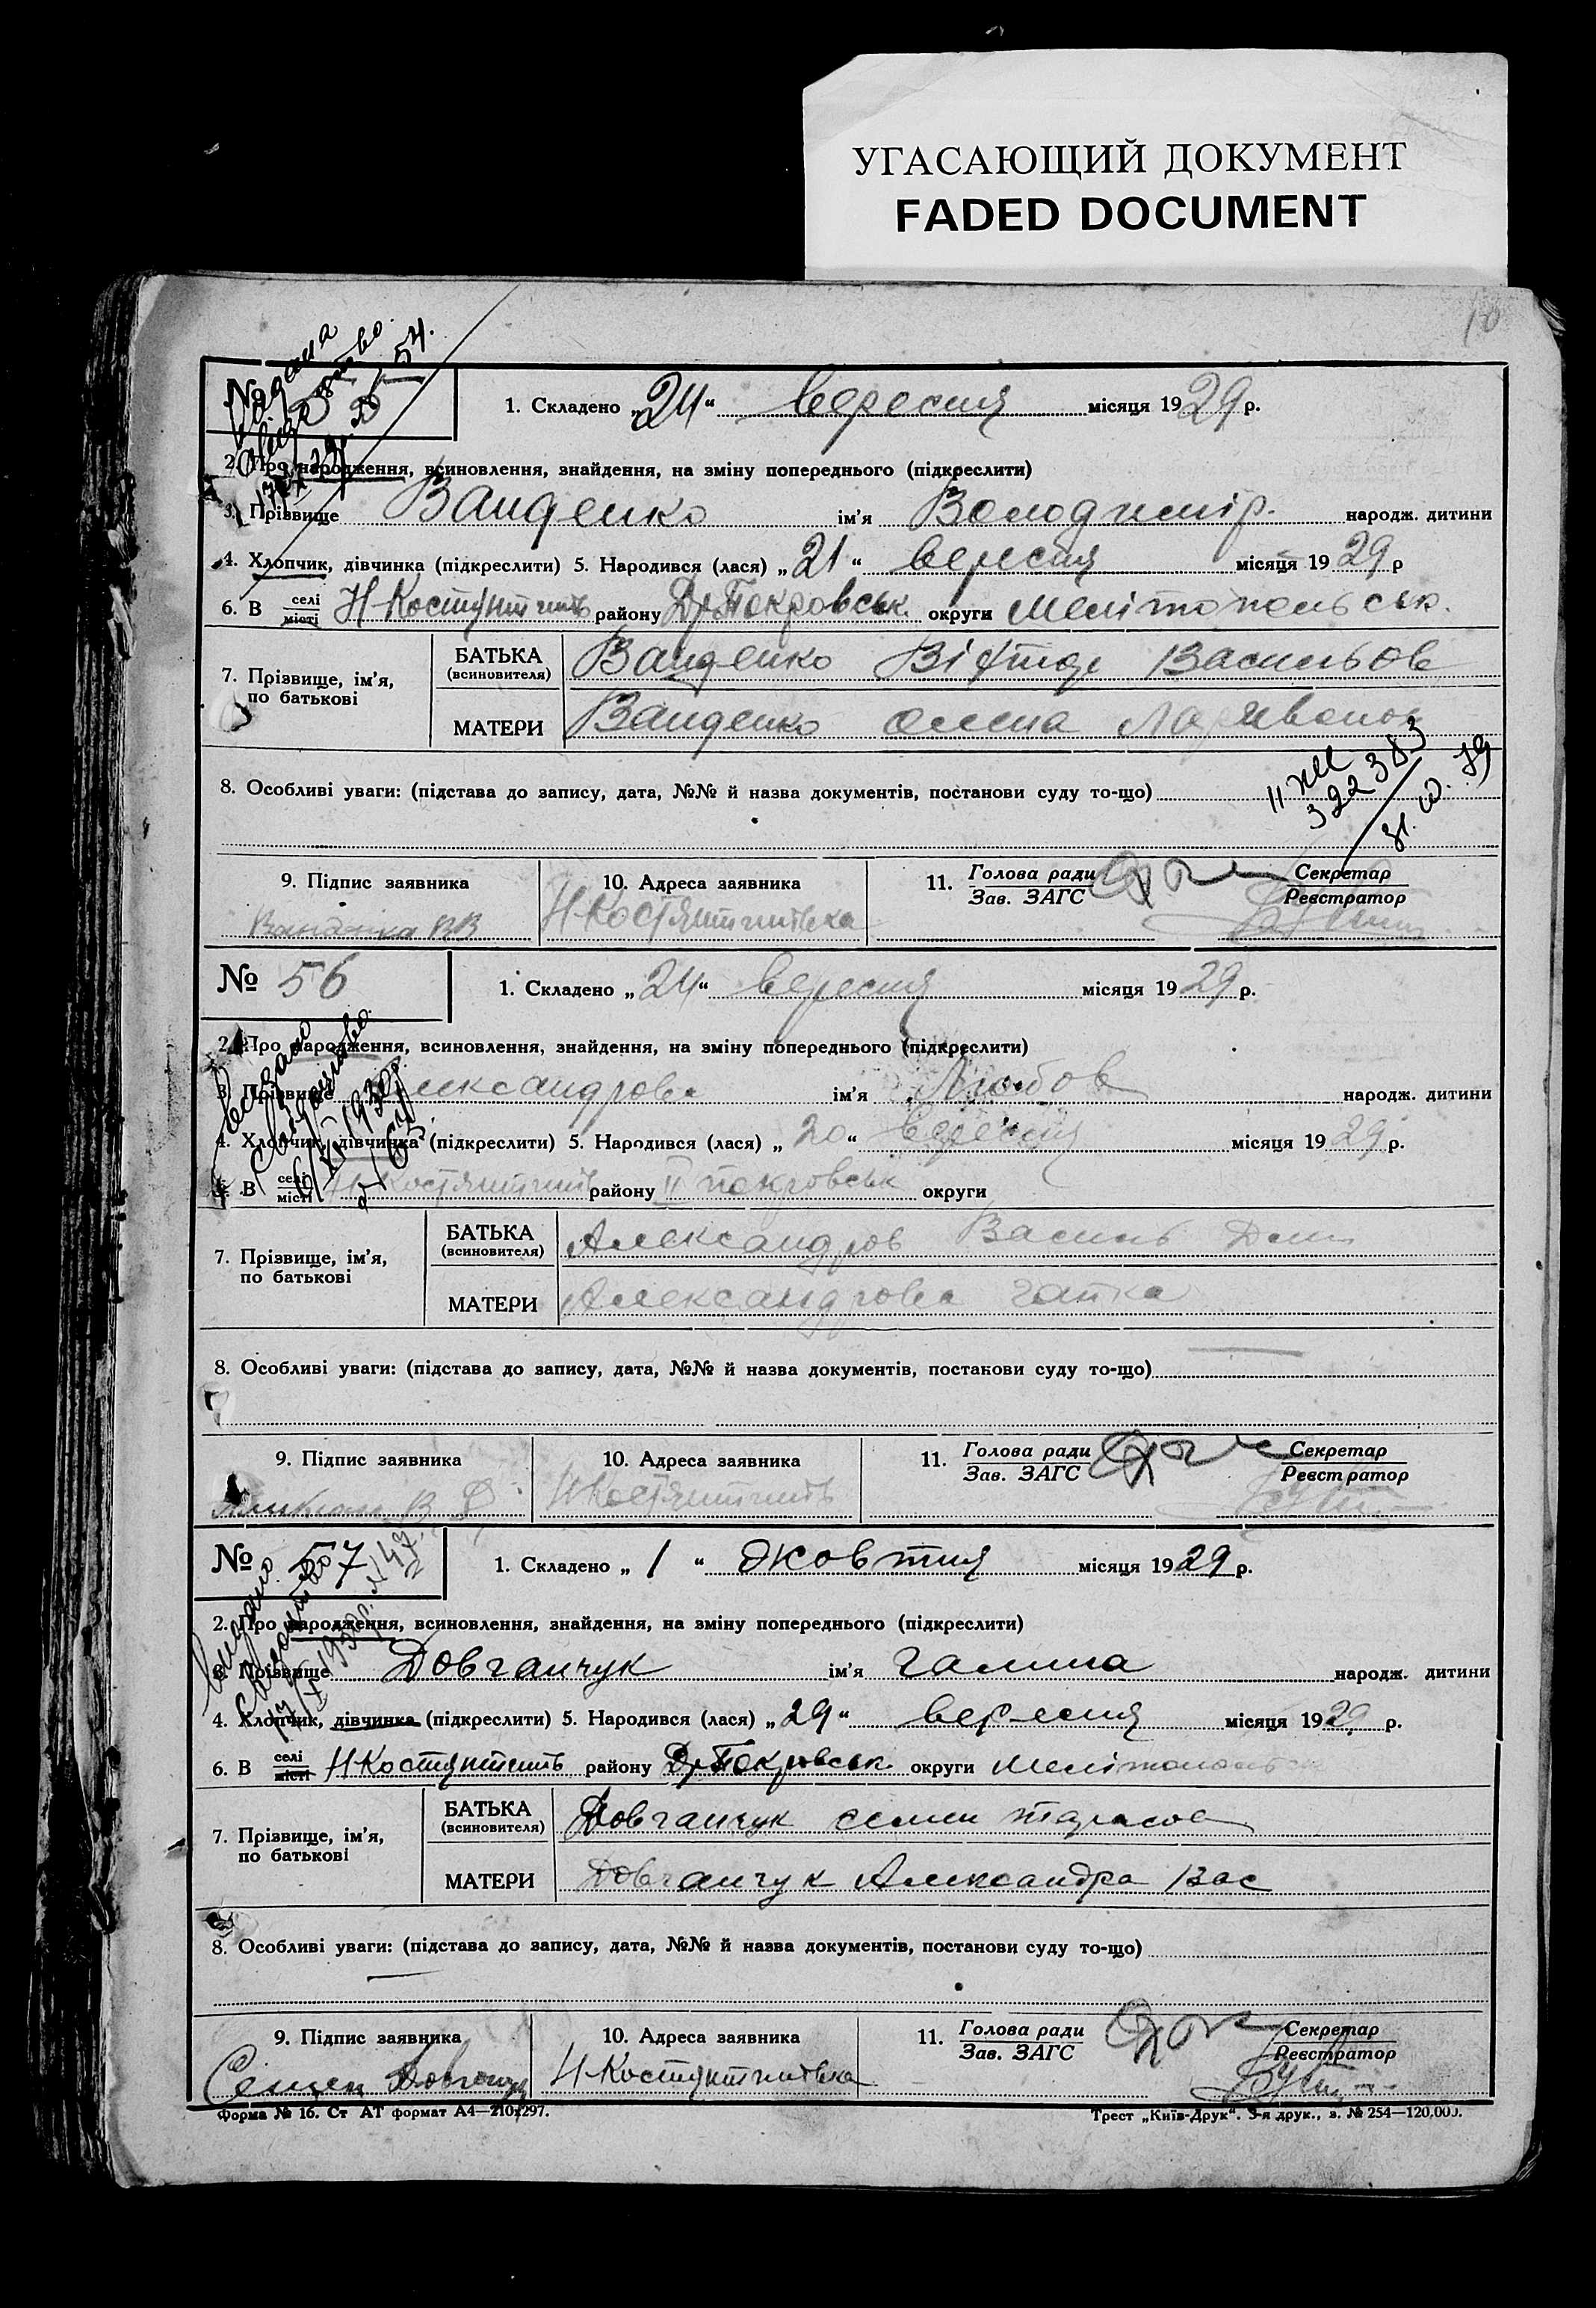 УГАСАЮЩИЙ ДОКУМЕНТ
FADED DOCUMENT
№ 55
1. Складено „24“ вересня місяця 1929 р.
2. Про народження, всиновлення, знайдення, на зміну попереднього (підкреслити)
3. Прізвище Ванденко ім’я Володимір. народж. дитини
4. Хлопчик, дівчинка (підкреслити) 5. Народився (лася) „21“ вересня місяця 1929 р
6. В селі місті Н-Костянтинів району Др Покровськ. округи Мелітопольськ.
7. Прізвище, ім’я, по батькові
БАТЬКА (всиновителя) Ванденко Віктор Васильов
МАТЕРИ Ванденко Олена
8. Особливі уваги: (підстава до запису, дата, №№ й назва документів, постанови суду то-що)
322 383
9. Підпис заявника
10. Адреса заявника Н Костянтинівка
11. Голова ради Зав. ЗАГС Секретар Реєстратор
№ 56
1. Складено „24“ вересня місяця 1929 р.
2. Про народження, всиновлення, знайдення, на зміну попереднього (підкреслити)
3. Прізвище Александрова ім’я Любов народж. дитини
4. Хлопчик, дівчинка (підкреслити) 5. Народився (лася) „20“ вересня місяця 1929 р.
6. В селі місті Н Костянтинів району покровськ округи
7. Прізвище, ім’я, по батькові
БАТЬКА (всиновителя) Александров Василь
МАТЕРИ Александрова Гапка
8. Особливі уваги: (підстава до запису, дата, №№ й назва документів, постанови суду то-що)
9. Підпис заявника
10. Адреса заявника Н Костянтинів
11. Голова ради Зав. ЗАГС Секретар Реєстратор
№ 57
1. Складено „1“ жовтня місяця 1929 р.
2. Про народження, всиновлення, знайдення, на зміну попереднього (підкреслити)
3. Прізвище Довганчук ім’я Галина народж. дитини
4. Хлопчик, дівчинка (підкреслити) 5. Народився (лася) „29“ вересня місяця 1929 р.
6. В селі місті Н Костянтинів району Др Покровськ. округи Мелітопольськ
7. Прізвище, ім’я, по батькові
БАТЬКА (всиновителя) Довганчук Семен Тарасов
МАТЕРИ Довганчук Александра Вас
8. Особливі уваги: (підстава до запису, дата, №№ й назва документів, постанови суду то-що)
9. Підпис заявника Семен Довганчук
10. Адреса заявника Н Костянтинівка
11. Голова ради Зав. ЗАГС Секретар Реєстратор
Форма № 16. Ст АТ формат А4—210×297.
Трест „Київ-Друк“. 3-я друк., з. № 254—120.000.